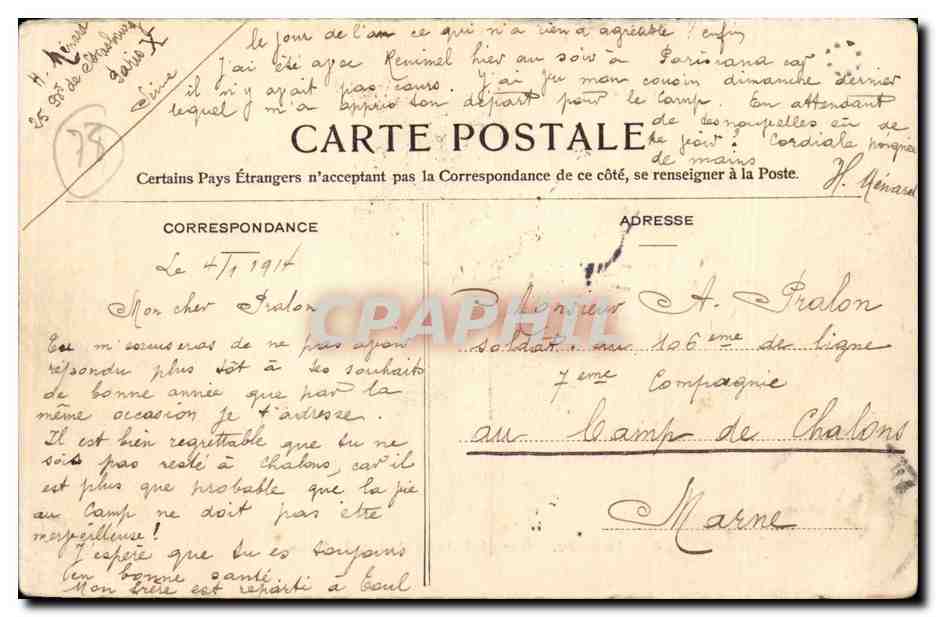 H. Ménard
25 Bd de Strasbourg
Paris X
Seine
le jour de l'an ce qui n'a rien d'agréable! enfin
J'ai été avec Renimel hier au soir à Parisiana car
il n'y avait pas cours. J'ai vu mon cousin dimanche dernier
lequel m'a appris ton départ pour le Camp. En attendant
de tes nouvelles ou de
te voir! Cordiale poignée
de mains
H. Ménard
73
CARTE POSTALE
Certains Pays Étrangers n'acceptent pas la Correspondance de ce côté, se renseigner à la Poste.
CORRESPONDANCE
Le 4/1 1914
Mon cher Pralon
Tu m'excuseras de ne pas avoir
répondu plus tôt à tes souhaits
de bonne année que par la
même occasion je t'adresse.
Il est bien regrettable que tu ne
sois pas resté à Chalons, car il
est plus que probable que la vie
au Camp ne doit pas être
merveilleuse!
J'espère que tu es toujours
en bonne santé.
Mon frère est reparti à Toul
ADRESSE
Monsieur A. Pralon
soldat au 106ème de ligne
7ème Compagnie
au Camp de Chalons
Marne
CPAPHIL